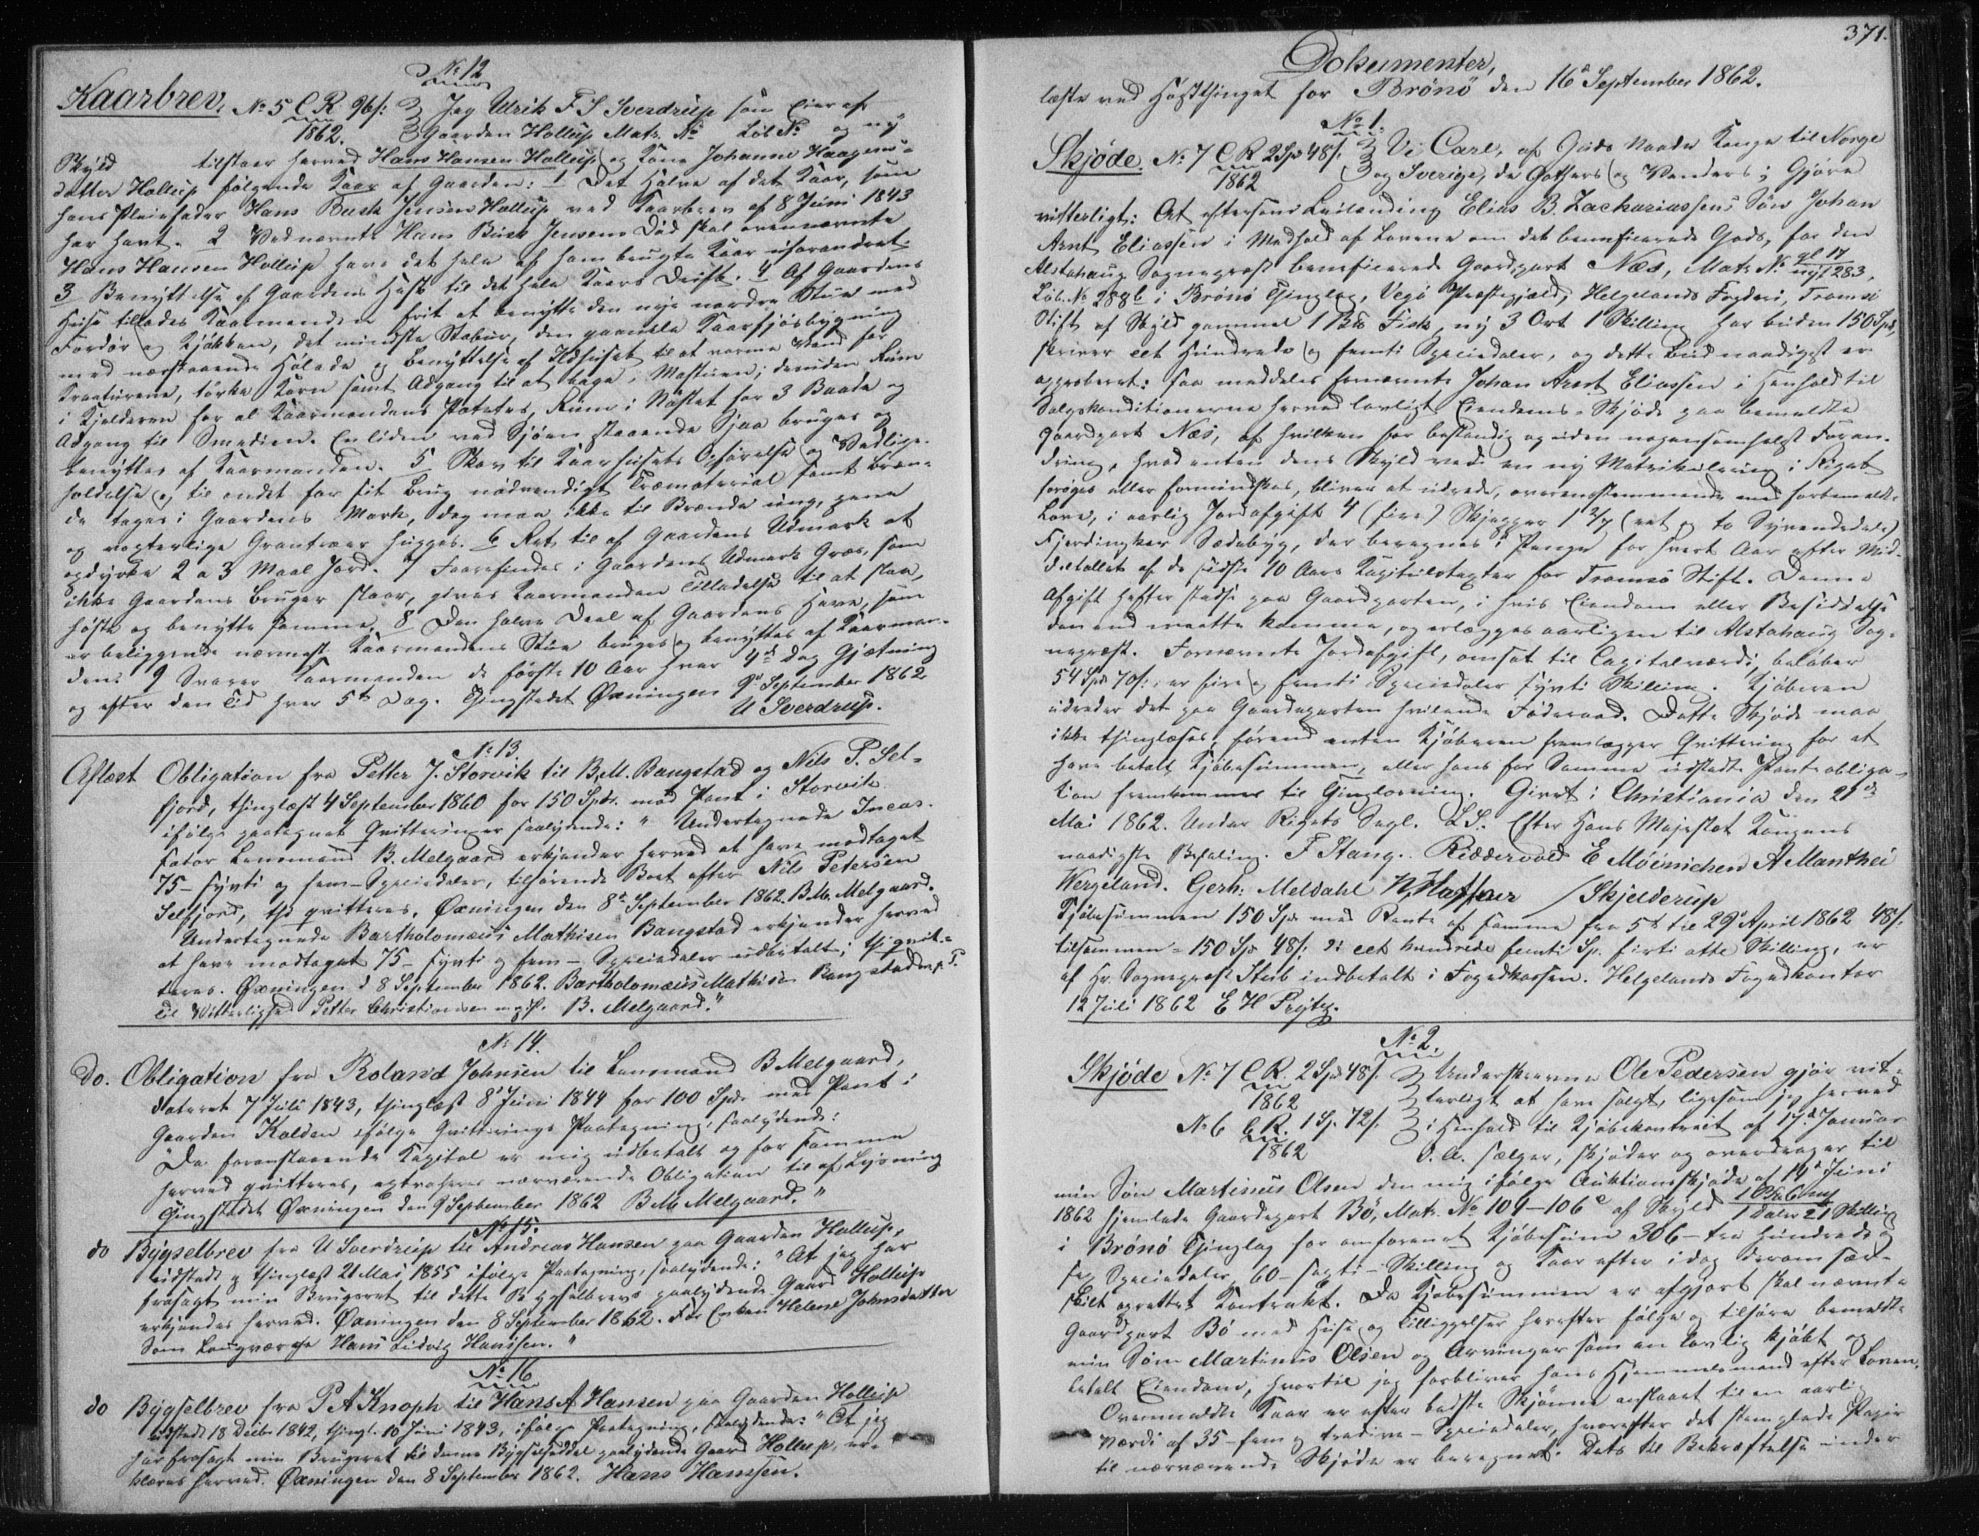 No 12
Kaarbrev. No 5 C.R 96 s: Jeg Ulrik F. S. Sverdrup som Eier af
1862. Gaarden Hollup Matr. No Løb No og ny
Skyld tilstaar herved Hans Hansen Hollup og Kone Johanne Haagens-
datter Hollup følgende Kaar af Gaarden: 1 Det Halve af det Kaar, som
hans Pleiefader Hans Busk Jensen Hollup ved Kaarbrev af 8 Juni 1843
har havt. 2 Ved nævnte Hans Busk Jensens Død skal ovennævnte
Hans Hansen Hollup have det hele af ham brugte Kaar uforandret.
3 Benyttelse af Gaardens Hest til det hele Kaars Drift. 4 Af Gaardens
Huse tillades Kaarmanden frit at benytte den nye nordre Stue med
Fordør og Kjøkken, det mindste Stabur, den gamle Kaarfjøsbygning
med nærstaaende Hølade og Benyttelse af Ildhuset til at varme Vand for
Kreaturene, tørke Korn samt Adgang til at bage i Masstuen; desuden Rum
i Kjelderen for al Kaarmandens Potetes, Rum i Nøstet for 3 Baade og
Adgang til Smedien. En liden ved Sjøen staaende Sjaa bruges og
benyttes af Kaarmanden. 5 Skov til Kaarhusets Opførelse og Vedlige-
holdelse og til andet for sit Brug nødvendigt Træmateriale samt Bræn-
de tages i Gaardens Mark, dog maa ikke til Brænde unge, pene
og voxterlige Grantræer hugges. 6 Ret til af Gaardens Udmark at
opdyrke 2 a 3 Maal Jord. 7 Forefindes i Gaardens Udmark Græs, som
ikke Gaardens Bruger slaar, gives Kaarmanden Tilladelse til at slaa,
høste og benytte samme. 8 Den halve Deel af Gaardens Have, som
er beliggende nærmest Kaarmandens Stue bruges og benyttes af Kaarman-
den. 9 Svarer Kaarmanden de første 10 Aar hver 4de Dag Gjætning
og efter den Tid hver 5te Dag. Thingstedet Øxningen 9de September 1862
U Sverdrup.
No 13.
Aflæst Obligation fra Petter J. Storvik til B. M. Bangstad og Nils P. Sel-
fjord, thinglæst 4 September 1860 for 150 Spdr. med Pant i Storvik
ifølge paategnet Qvitteringer saalydende: "Undertegnede Incas-
sator Lensmand B. Melgaard erkjender herved at have modtaget
75 - syvti og fem - Speciedaler, tilhørende Boet efter Nils Petersen
Selfjord, thi qvitteres. Øxningen den 8de September 1862. B. M. Melgaard.
Undertegnede Bartholomæus Mathisen Bangstad erkjender herved
at have modtaget 75 - syvti og fem - Speciedaler udbetalt; thi qvit-
teres. Øxningen d 8 September 1862. Bartholomæus Mathisen Bangstad m. p. P.
Til Vitterlighed Petter Christiansen m. p. P. B. Melgaard."
No 14.
do. Obligation fra Roland Johnsen til Lensmand B Melgaard,
dateret 7 Juli 1843, thinglæst 8de Juni 1844 for 100 Spdr. med Pant i
Gaarden Kalden ifølge Qvitterings Paategning, saalydende:
"Da foranstaaende Kapital er mig udbetalt og for samme
herved qvitteres, extraheres nærværende Obligation til afLysning
Thingstedet Øxningen den 9 September 1862 B. M. Melgaard."
No 15.
do Bygselbrev fra U Sverdrup til Andreas Hansen paa Gaarden Hollup,
udstedt og thinglæst 21 Mai 1855 ifølge Paategning, saalydende: "At jeg har
frasagt min Brugsret til dette Bygselbrevs paalydende Gaard Hollup
erkjendes herved. Øxningen den 8 September 1862. For Enken Helene Johnsdatter
Som Laugværge Hans Ludvig Hanssen."
No 16
do Bygselbrev fra P A Knoph til Hans A Hansen paa Gaarden Hollup
udstedt 18 Decbr 1842, thingl. 10 Juni 1843, ifølge Paategning, saalydende: "At jeg
har frasagt min Brugsret til denne Bygselseddel paalydende Gaard Hollup, er-
klæres herved. Øxningen den 8 September 1862. Hans Hanssen.
371.
Dokumenter,
læste ved Høstthinget for Brønø den 16de September 1862.
No 1.
Skjøde. No 7 C.R 2 Spd 48 s. Vi Carl, af Guds Naade Konge til Norge
1862 og Sverige, de Gothers og Venders; Gjøre
vitterligt: At eftersom Leilænding Elias B. Zachariassens Søn Johan
Arnt Eliassen i Medhold af Lovene om det beneficerede Gods, for den
Alstahaug Sognepræst beneficerede Gaardpart Næs, Matr No gl 17
ny 283,
Løb. No 288b i Brønø Thinglag, Vegø Præstegjæld, Helgelands Fogderi, Tromsø
Stift af Skyld gammel 1 Bd. Fisk, ny 3 Ort 1 Skilling har buden 150 Spd,
skriver eet Hundrede og femti Speciedaler, og dette Bud naadigst er
approberet: saa meddeles fornævnte Johan Arnt Eliassen i Henhold til
Salgskonditionerne herved lovligt Eiendoms-Skjøde paa bemeldte
Gaardpart Næs, af hvilken for bestandig og uden nogensomhelst Foran-
dring, hvad enten dens Skyld ved en ny Matrikulering i Riget
forøges eller formindskes, bliver at udrede, overensstemmende med forbemeldte
Love, i aarlig Jordafgift 4 (fire) Skjepper 1 2/7 (eet og to Syvendedele)
Fjerdingkar Sædebyg, der beregnes i Penge for hvert Aar efter Mid-
deltallet af de sidste 10 Aars Kapitelstaxter for Tromsø Stift. Denne
Afgift hefter stedse paa Gaardparten, i hvis Eiendom eller Besiddelse
den end maatte komme, og erlægges aarligen til Alstahaug Sog-
nepræst. Fornævnte Jordafgift, omsat til Capitalværdi, beløber
54 Spd 70 s. er fire og femti Speciedaler syvti Skilling. Kjøberen
udreder det paa Gaardparten hvilende Føderaad. Dette Skjøde maa
ikke thinglæses, førend enten Kjøberen fremlægger Qvittering for at
have betalt Kjøbesummen, eller hans for Samme udstedte Panteobliga-
tion fremkommer til Thinglæsning. Givet i Christiania den 21de
Mai 1862. Under Rigets Segl. L.S. Efter Hans Majestæt Kongens
naadigste Befaling. F Stang. Riddervold E Moinichen A Manthei
Wergeland. Gerh: Meldahl N Haffner / Skjelderup
Kjøbesummen 150 Spd med Rente af samme fra 5te til 29de April 1862 48 s.
tilsammen = 150 Sp 48 s. er eet hundrede femti Sp. firti otte Skilling, er
af Hr. Sognepræst Stub indbetalt i Fogedkassen. Helgelands Fogedkontor
12 Juli 1862 E H Prytz.
No 2.
Skjøde No 7 C.R. 2 Spd 48 s. Underskrevne Ole Pedersen gjør vit-
1862 terligt at have solgt, ligesom jeg herved
No 6 C.R. 1 Sp. 72 s. i Henhold til Kjøbekontract af 17de Januar
1862 d. A. sælger, skjøder og overdrager til
min Søn Martinus Olsen den mig ifølge Auktionsskjøde af 10de Juni
1862 hjemlede Gaardpart Bø, Matr. No 104-106c af Skyld
1 Daler 21 Skilling
i Brønø Thinglag for omforenet Kjøbesum 306 - tre hundrede og
sex Speciedaler 60 - sexti - Skilling og Kaar efter i dag derom sær-
skilt oprettet Kontrakt. Da Kjøbesummen er afgjort skal nævnte
Gaardpart Bø med Huse og Tilliggelser herefter følge og tilhøre bemeldte
min Søn Martinus Olsen og Arvinger som en lovlig kjøbt og
betalt Eiendom, hvortil jeg forbliver hans Hjemmelsmand efter Loven.
Ovenmeldte Kaar er efter bedste Skjønne anslaaet til en aarlig
Værdi af 35 - fem og tredive - Speciedaler, hvorefter det stemplede Papir
til nærværende Skjøde er beregnet. Dets til Bekræftelse under